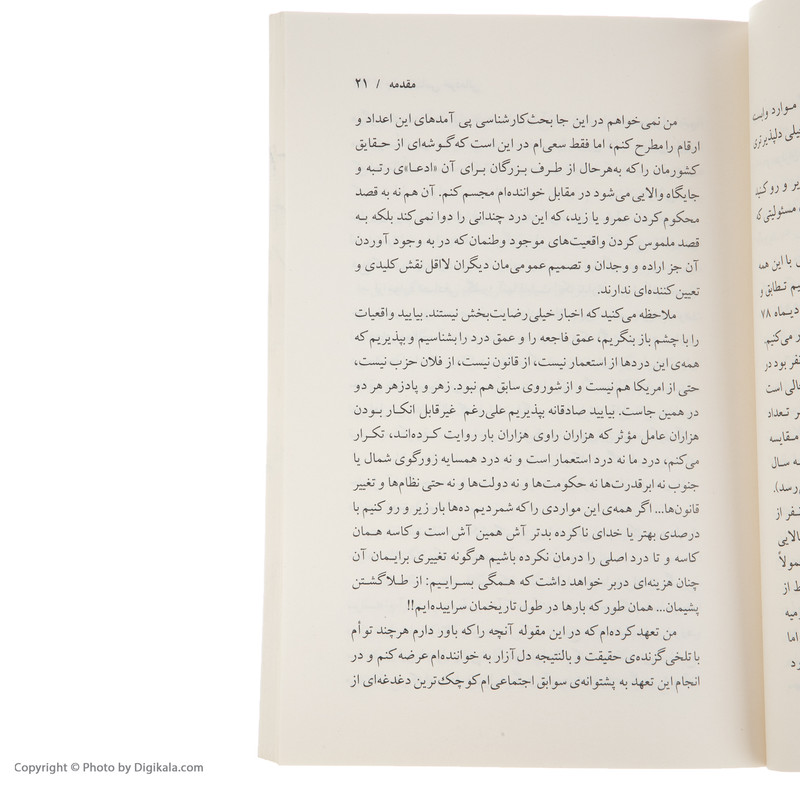 مقدمه / ۲۱
من نمی‌خواهم در این جا بحث‌کارشناسی پی آمدهای این اعداد و
ارقام را مطرح کنم، اما فقط سعی‌ام در این است که گوشه‌ای از حقایق
کشورمان را که به‌هرحال از طرف بزرگان برای آن «ادعا»ی رتبه و
جایگاه والایی می‌شود در مقابل خواننده‌ام مجسم کنم. آن هم نه به قصد
محکوم کردن عمرو یا زید، که این درد چندانی را دوا نمی‌کند بلکه به
قصد ملموس کردن واقعیت‌های موجود وطنمان که در به وجود آوردن
آن جز اراده و وجدان و تصمیم عمومی‌مان دیگران لااقل نقش کلیدی و
تعیین کننده‌ای ندارند.
ملاحظه می‌کنید که اخبار خیلی رضایت‌بخش نیستند. بیایید واقعیات
را با چشم باز بنگریم، عمق فاجعه را و عمق درد را بشناسیم و بپذیریم که
همه‌ی این دردها از استعمار نیست، از قانون نیست، از فلان حزب نیست،
حتی از امریکا هم نیست و از شوروی سابق هم نبود. زهر و پادزهر هر دو
در همین جاست. بیایید صادقانه بپذیریم علی‌رغم غیرقابل انکار بودن
هزاران عامل مؤثر که هزاران راوی هزاران بار روایت کرده‌اند، تکرار
می‌کنم، درد ما نه درد استعمار است و نه درد همسایه زورگوی شمال یا
جنوب نه ابرقدرت‌ها نه حکومت‌ها و نه دولت‌ها و نه حتی نظام‌ها و تغییر
قانون‌ها... اگر همه‌ی این مواردی را که شمردیم ده‌ها بار زیر و رو کنیم با
درصدی بهتر یا خدای ناکرده بدتر آش همین آش است و کاسه همان
کاسه و تا درد اصلی را درمان نکرده باشیم هرگونه تغییری برایمان آن
چنان هزینه‌ای دربر خواهد داشت که همگی بسراییم: از طلاگشتن
پشیمان... همان طور که بارها در طول تاریخمان سراییده‌ایم!!
من تعهد کرده‌ام که در این مقوله آنچه را که باور دارم هرچند توأم
با تلخی گزنده‌ی حقیقت و بالنتیجه دل آزار به خواننده‌ام عرضه کنم و در
انجام این تعهد به پشتوانه‌ی سوابق اجتماعی‌ام کوچک‌ترین دغدغه‌ای از
موارد وابست
یلی دلپذیرتری
یر و رو کنید
مسئولیتی که
با این همه
یم تطابق و
دیماه ۷۸
ر می‌کنیم
نفر بود در
الی است
ر تعداد
مقایسه
ه سال
ی‌رسد).
نفر از
الایی
مولاً
ط از
رمیه
اما
رد
Copyright © Photo by Digikala.com